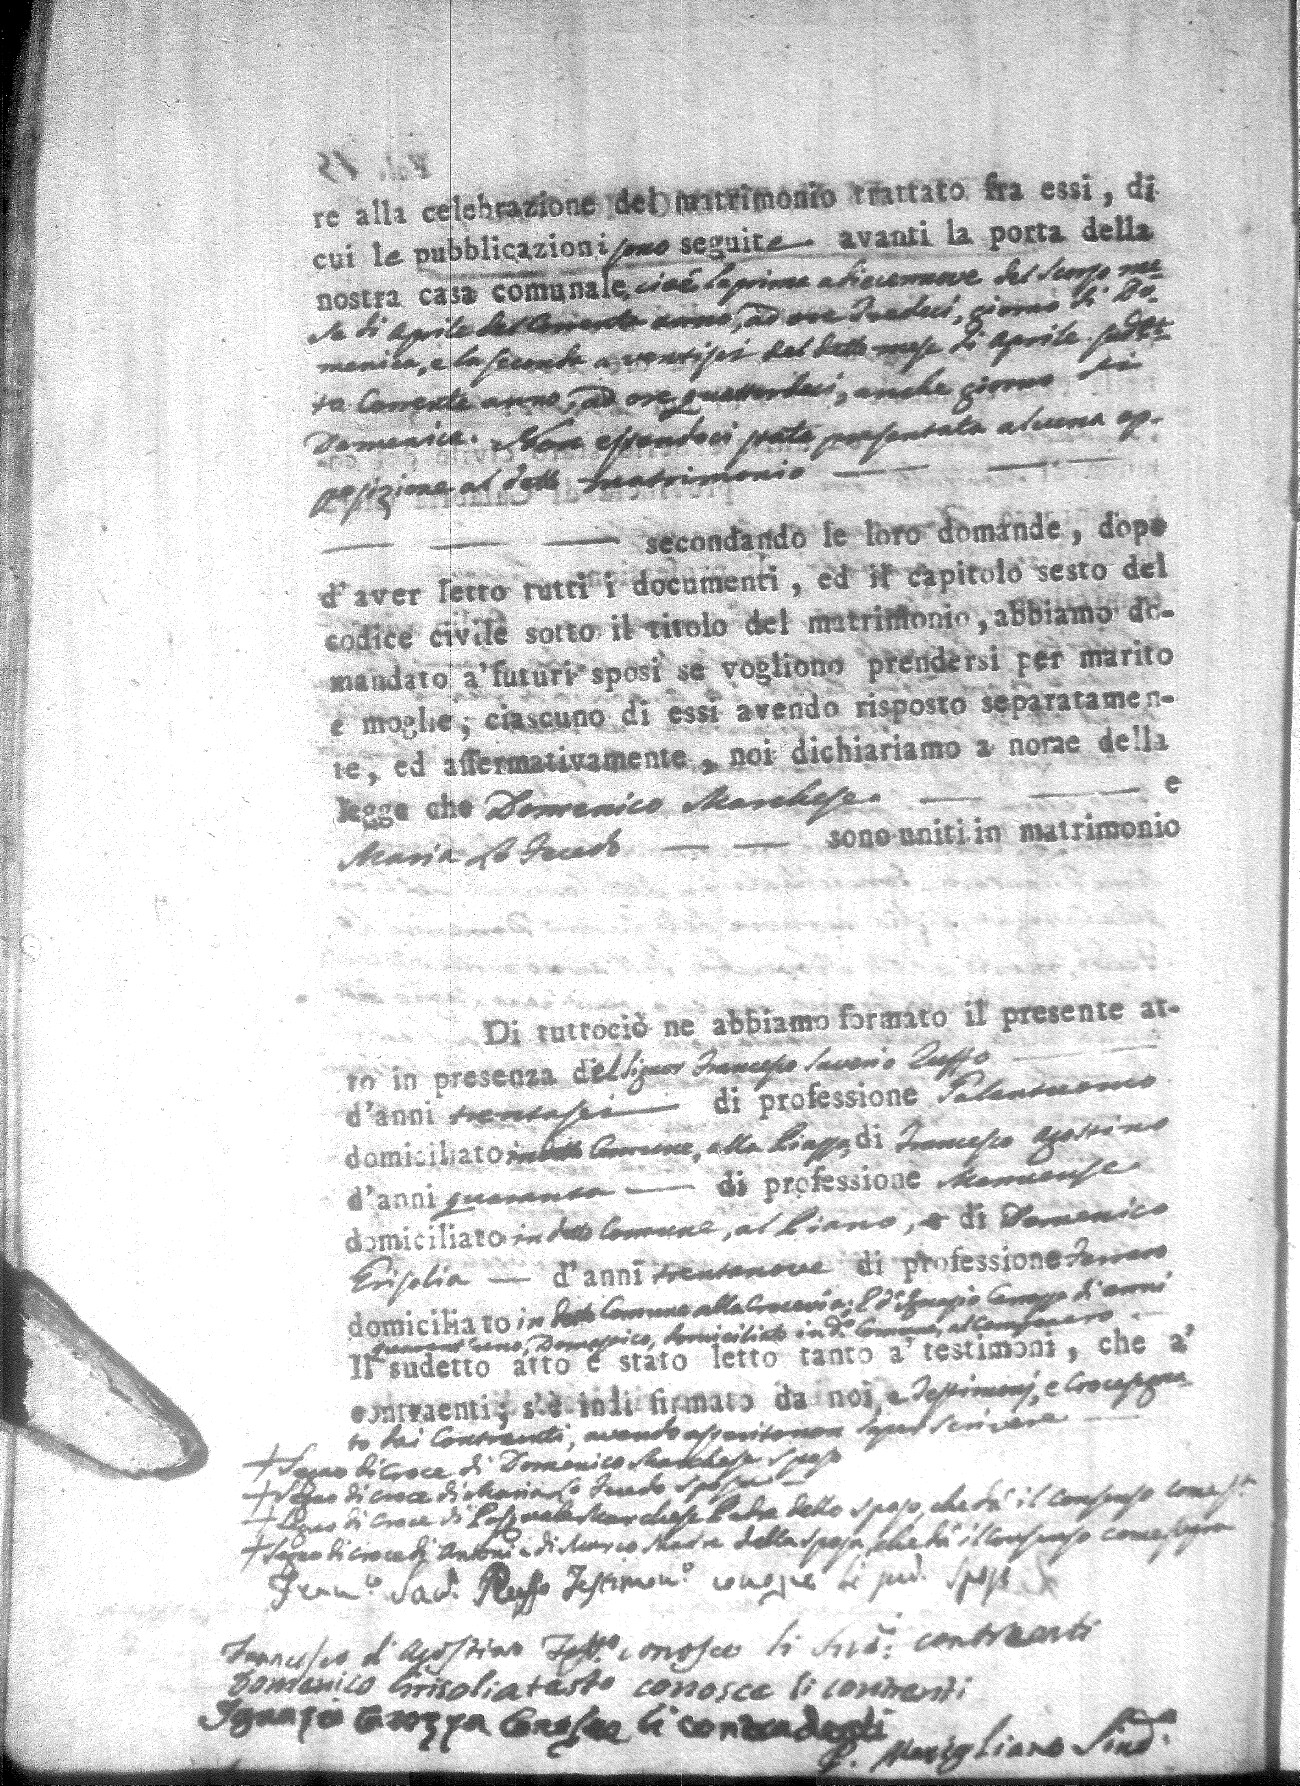 re alla celebrazione del matrimonio trattato fra essi, di
cui le pubblicazioni sono seguite avanti la porta della
nostra casa comunale, cioè la prima a diecennove del scorso me-
se di Aprile del Corrente anno, ad ore tredeci, giorno di Do-
menica, e la seconda a ventisei del detto mese di Aprile sudet-
to Corrente anno, ad ore quattordeci, anche giorno di
Domenica. Non essendoci stata presentata alcuna op-
posizione al detto matrimonio
secondando le loro domande, dopo
d'aver letto tutti i documenti, ed il capitolo sesto del
codice civile sotto il titolo del matrimonio, abbiamo do-
mandato a' futuri sposi se vogliono prendersi per marito
e moglie; ciascuno di essi avendo risposto separatamen-
te, ed affermativamente, noi dichiariamo a nome della
legge che Domenico Marchese e
Maria Lo sono uniti in matrimonio
Di tuttociò ne abbiamo formato il presente at-
to in presenza del Signor Francesco Saverio
d'anni trentasei di professione Galantuomo
domiciliato in detto Comune, alla Piazza, di Francesco Agostino
d'anni quaranta di professione
domiciliato in detto Comune, al Piano, e di Domenico
Grisolia d'anni trentanove di professione Ferraro
domiciliato in detto Comune alla Crocevia; E d'Ignazio di anni
uno, domiciliato in do. Comune,
Il sudetto atto è stato letto tanto a' testimoni, che a'
contraenti; s'è indi firmato da noi, e Testimonj, e Crocesegna-
to dai Contraenti, avendo asserito non saper scrivere
+ Segno di Croce di Domenico Marchese sposo
+ Segno di croce di Maria Lo sposa
+ Segno di Croce di Pasquale Marchese Padre dello sposo, che dà il consenso come sa.
+ Segno di croce di Antonia di Marco Madre della sposa, che dà il consenso come sopra
Franco. Savo. Testimono. conosce li sposi
Francesco d'Agostino Testo. conosco li contraenti
Domenico Grisolia testo conosce li contraenti
Ignazio Conosce li
P. Marigliano Sindo.